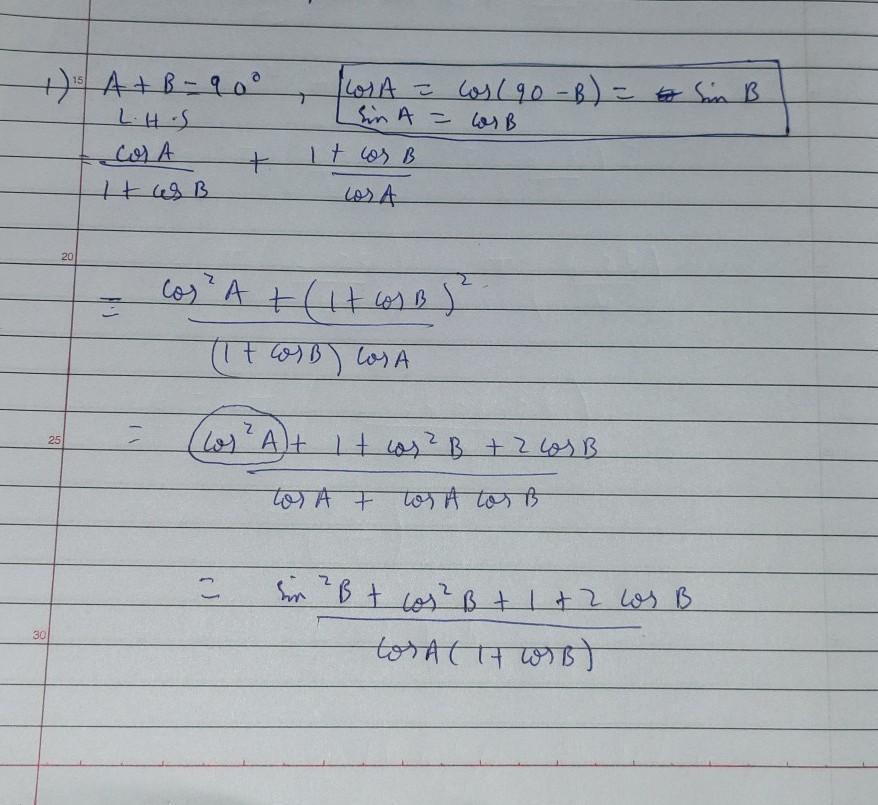 1) 15 A + B = 90° , cos A = cos(90 - B) = sin B
L.H.S sin A = cos B
= cos A / 1 + cos B + 1 + cos B / cos A
20
= cos² A + (1 + cos B)² / (1 + cos B) cos A
25 = cos² A + 1 + cos² B + 2 cos B / cos A + cos A cos B
= sin² B + cos² B + 1 + 2 cos B / cos A (1 + cos B)
30